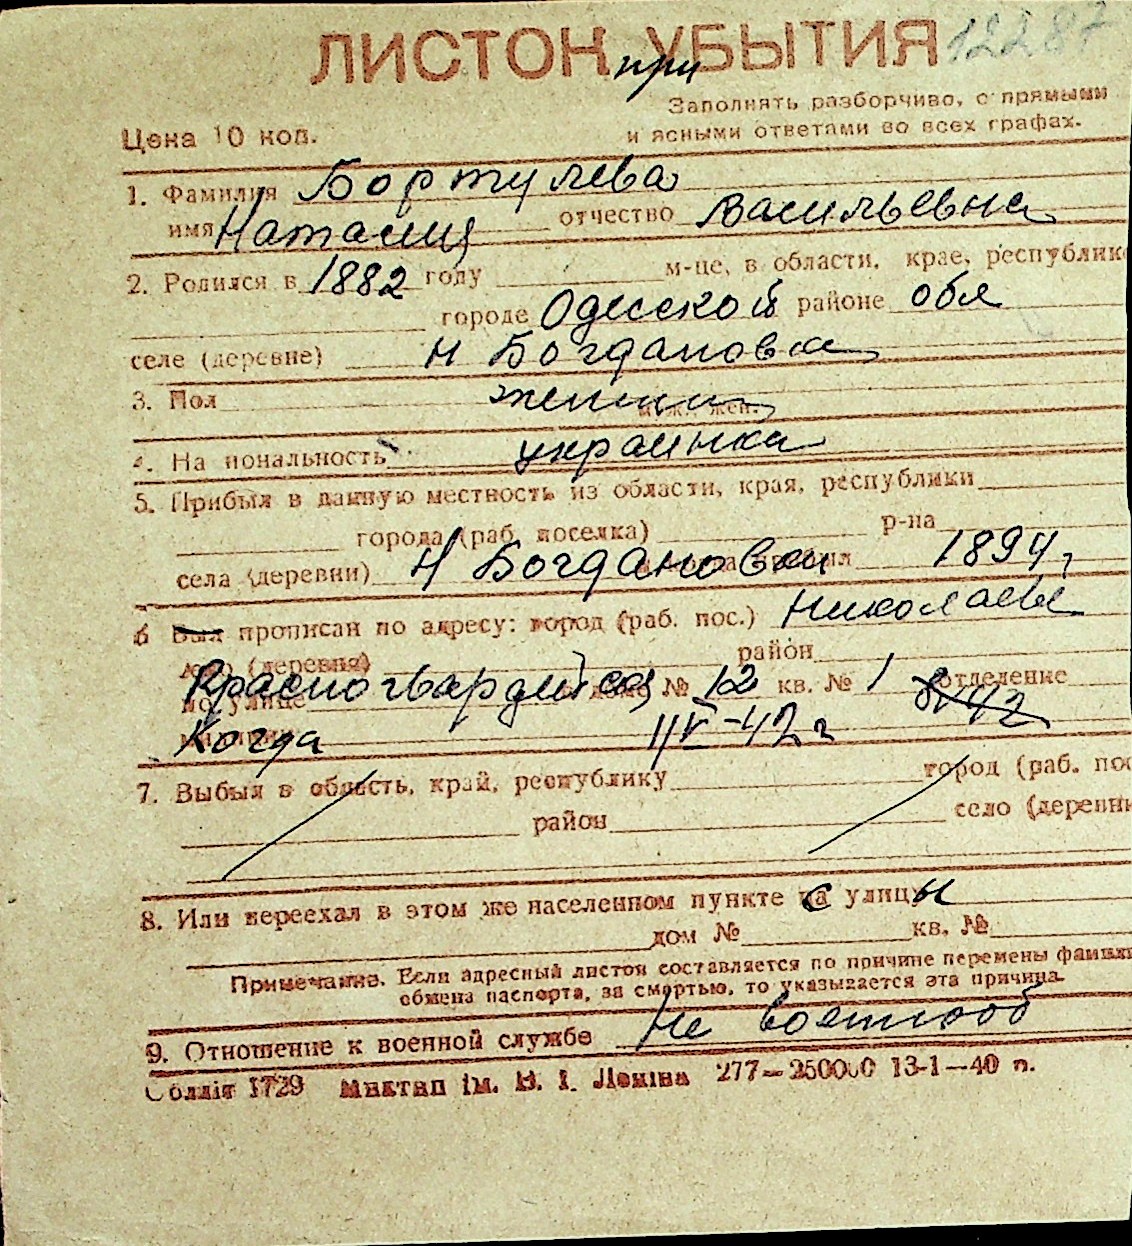 ЛИСТОК при УБЫТИЯ 12287
Заполнять разборчиво, с прямыми
и ясными ответами во всех графах.
Цена 10 коп.
1. Фамилия Бортулева
имя Наталия отчество Васильевна
2. Родился в 1882 году м-це, в области, крае, республике
городе Одесской районе обл
селе (деревне) Н Богдановка
3. Пол женщин муж. жен.
4. Национальность украинка
5. Прибыл в данную местность из области, края, республики
города (раб. поселка) р-на
села (деревни) Н Богдановки 1894 г
6 Был прописан по адресу: город (раб. пос.) Николаев
село (деревня) район
по улице Красногвардейская дом № 12 кв. № 1 отделение
Когда
7. Выбыл в область, край, республику город (раб. пос
район село (деревн
8. Или переехал в этом же населенном пункте с улицы
дом № кв. №
Примечание. Если адресный листок составляется по причине перемены фамили
обмена паспорта, за смертью, то указывается эта причина.
9. Отношение к военной службе Не военнооб
1729 ім. В. І. Леніна 277—250000 13-1—40 п.